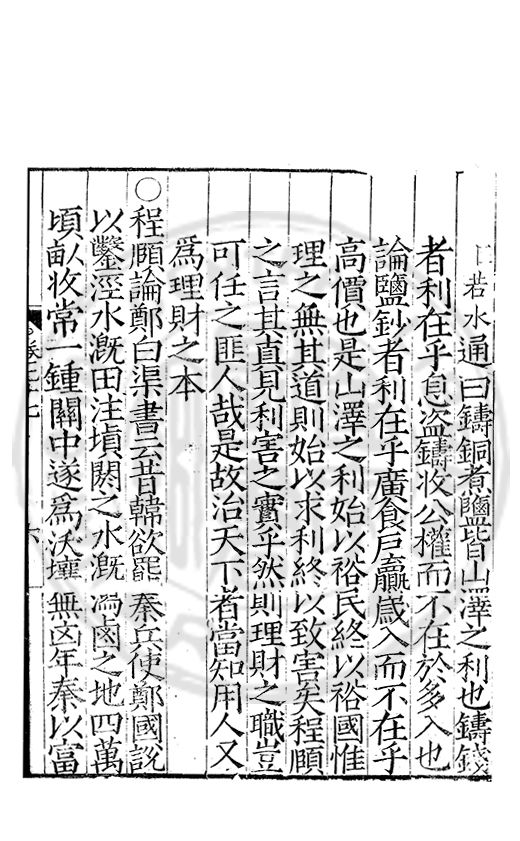 若水通曰鑄銅煮鹽皆山澤之利也鑄錢
者利在乎息盜鑄收公權而不在於多入也
論鹽鈔者利在乎廣食戶贏歲入而不在乎
高價也是山澤之利始以裕民終以裕國惟
理之無其道則始以求利終以致害矣程頤
之言其真見利害之實乎然則理財之職豈
可任之匪人哉是故治天下者當知用人又
為理財之本
○程頤論鄭白渠書云昔韓欲罷秦兵使鄭國說
以鑿涇水溉田注填閼之水溉舄鹵之地四萬
頃畝收常一鍾關中遂為沃壤無凶年秦以富